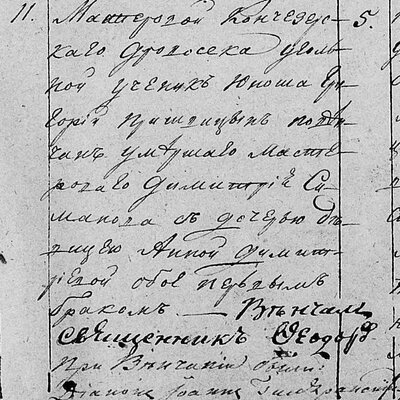 11. Мастеровой Кончезер- 5.
скаго дровосека уголь-
ной ученикъ Юноша Гри-
горій повѣн-
чанъ умершаго масте-
роваго Димитрій Си-
манова съ дочерью дѣ-
вицею Анной Димит-
ріевой обое первымъ
бракомъ. — Вѣнчалъ
Священникъ Ѳеодоръ
При Вѣнчаніи были:
Діаконъ Іоаннъ